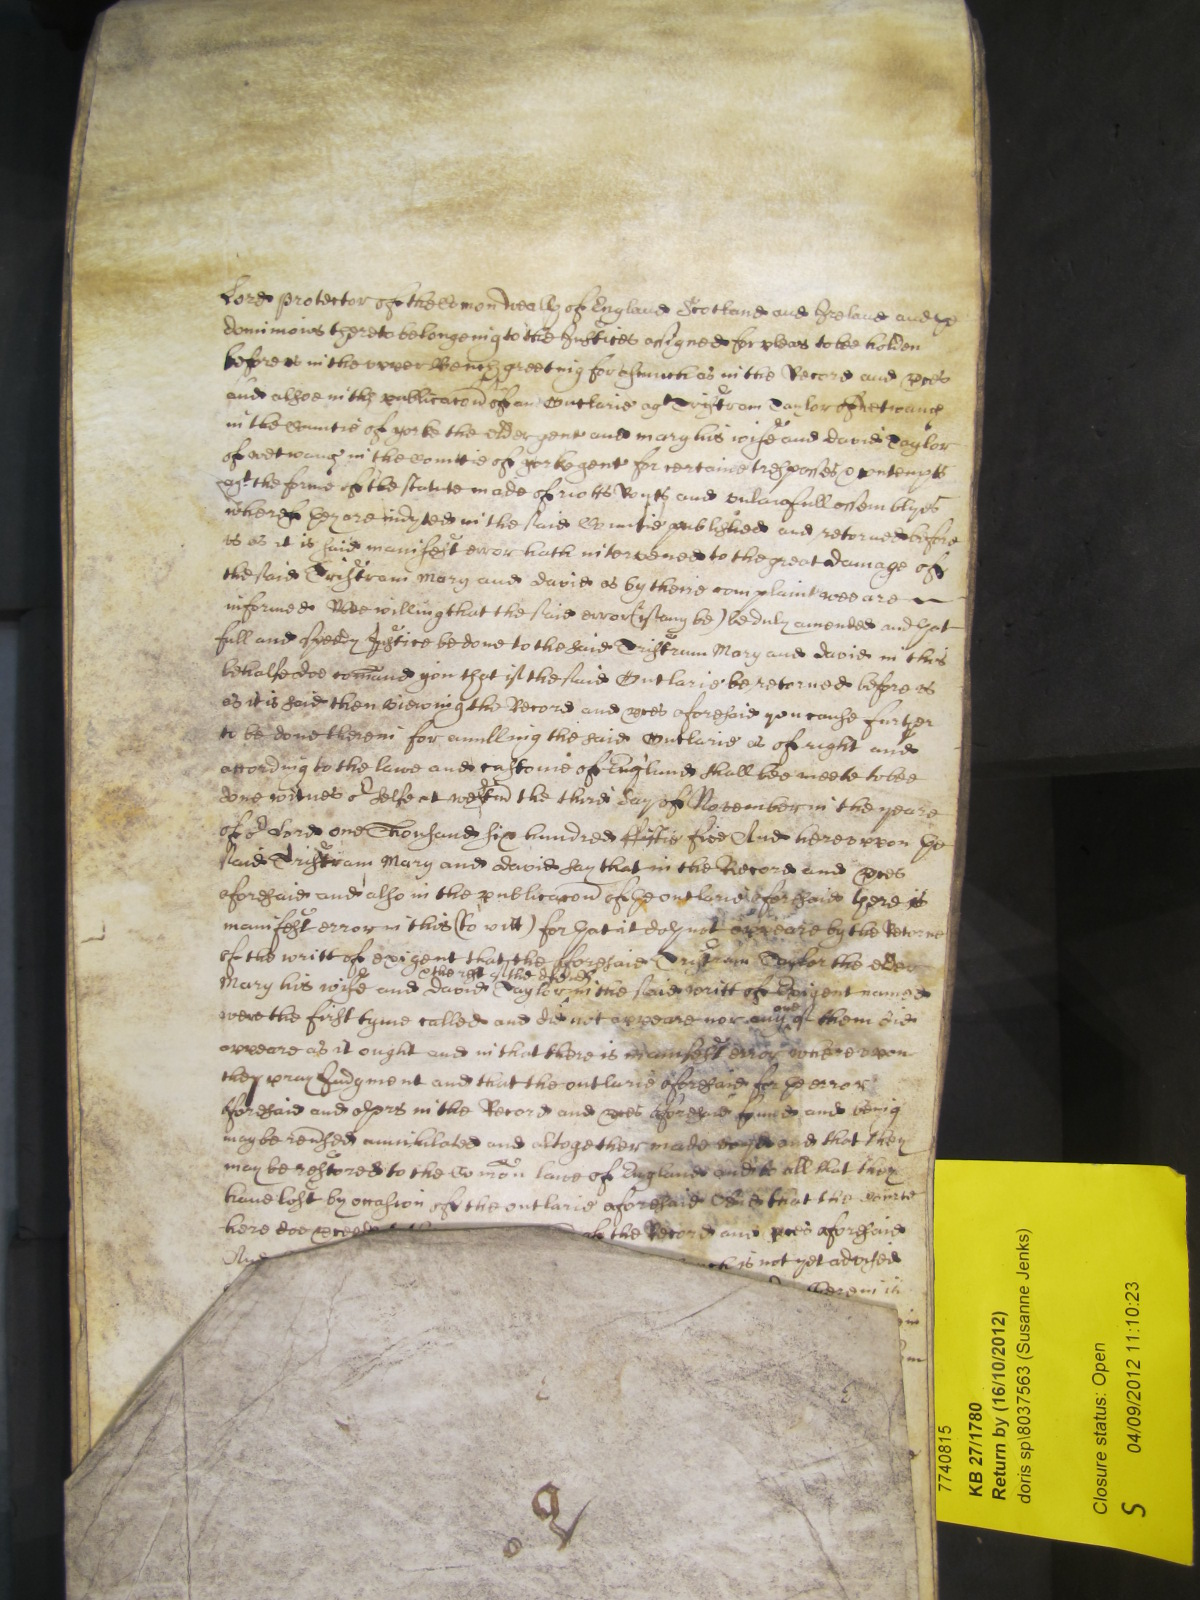 Lord protector of the Comon wealth of England Scotland and Ireland and ye
dominions thereto belongeing to the Justices assigned for pleas to be holden
before us in the upper Bench greeting forasmuch as in the Record and pces
and alsoe in the publicacon of an Outlarie agt Tristram Taylor of Wetwang
in the Countie of yorke the elder gent and mary his wife and david Taylor
of wetwang in the Countie of yorke gent for certaine trespasses & contempts
agt the forme of the statute made of riotts Routs and unlawfull assemblyes
whereof they are indyted in the said Countie published and retorned before
us as it is said manifest error hath intervened to the great damage of
the said Tristram Mary and david as by theire complaint wee are
informed Wee willing that the said error (if any be) be duly amended and yat
full and speedy Justice be done to the said Tristram Mary and david in this
behalfe doe comand you that if the said Outlarie be retorned before us
as it is said then viewing the Record and pces aforesaid you cause further
to be done therein for anulling the said Outlarie as of right and
according to the lawe and custome of England shall bee meete to bee
done witnes or selfe at westm the third day of November in the yeare
of or Lord one Thousand six hundred fiftie five And hereupon ye
said Tristram Mary and david say that in the Record and pces
aforesaid and also in the publicacon of ye outlarie aforesaid there is
manifest error in this (to witt) for yat it doth not appeare by the Retorne
of the writt of exigent that the aforesaid Tristram Taylor the elder
Mary his wife and david Taylor & the rest of the defts in the said writt of Exigent named
were the first tyme called and did not appeare nor any one of them did
appeare as it ought and in that there is manifest error whereupon
they pray Judgment and that the outlarie aforesaid for ye error
aforesaid and others in the Record and pces aforesaid found and being
may be reversed annihilated and altogether made voyd and that they
may be restored to the Comon lawe of England and to all that they
have lost by occasion of the outlarie aforesaid And that the courte
here doe proceed the Record and pces aforesaid
And is not yet advised
therein is
7740815
KB 27/1780
Return by (16/10/2012)
doris sp\8037563 (Susanne Jenks)
Closure status: Open
S 04/09/2012 11:10:23